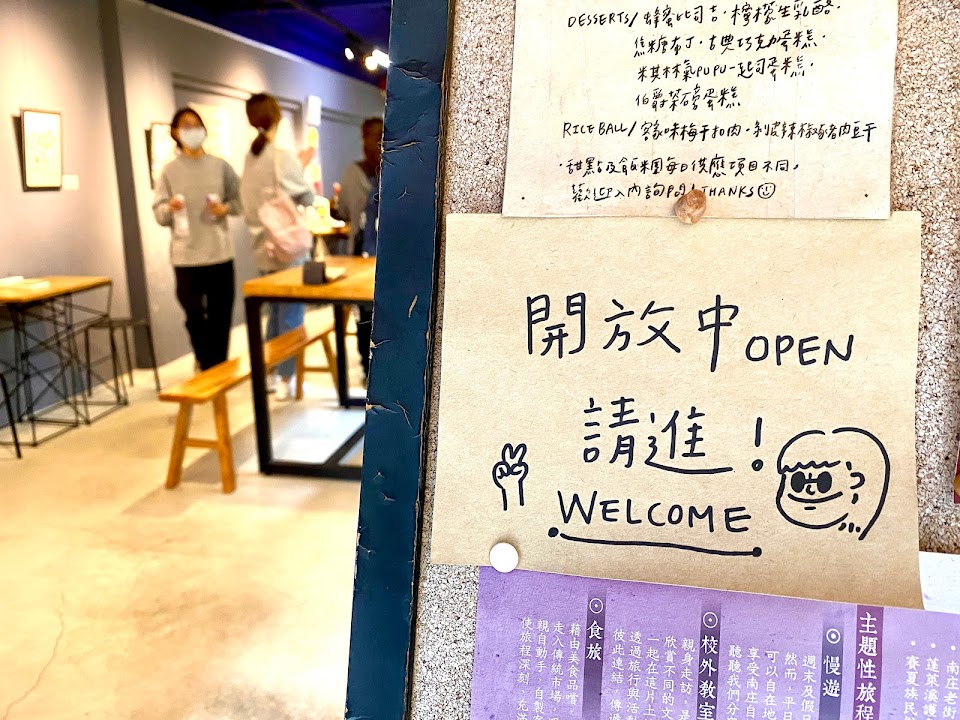 DESSERTS/ 蜂蜜比司吉.檸檬生乳酪.
焦糖布丁.古典巧克力蛋糕.
米其林氣PUPU一起司蛋糕.
伯爵茶磅蛋糕
RICE BALL/ 客家味梅干扣肉.剝皮辣椒豬肉豆干
·甜點及飯糰每日供應項目不同,
入內詢問! THANKS
開放中 OPEN
請進!
WELCOME
·南庄老街
·蓬萊溪護
·賽夏族民
主題性旅程
慢遊
週末及假
然而,平
可以自在地
享受南庄自
聽聽我們分
校外教室
親身走訪,是
欣賞不同的文
一起在這片土
透過旅行與活
彼此連結,傳
食旅
藉由美食品嚐,
走入傳統市場,
親自動手,自製
使旅程深刻、充滿